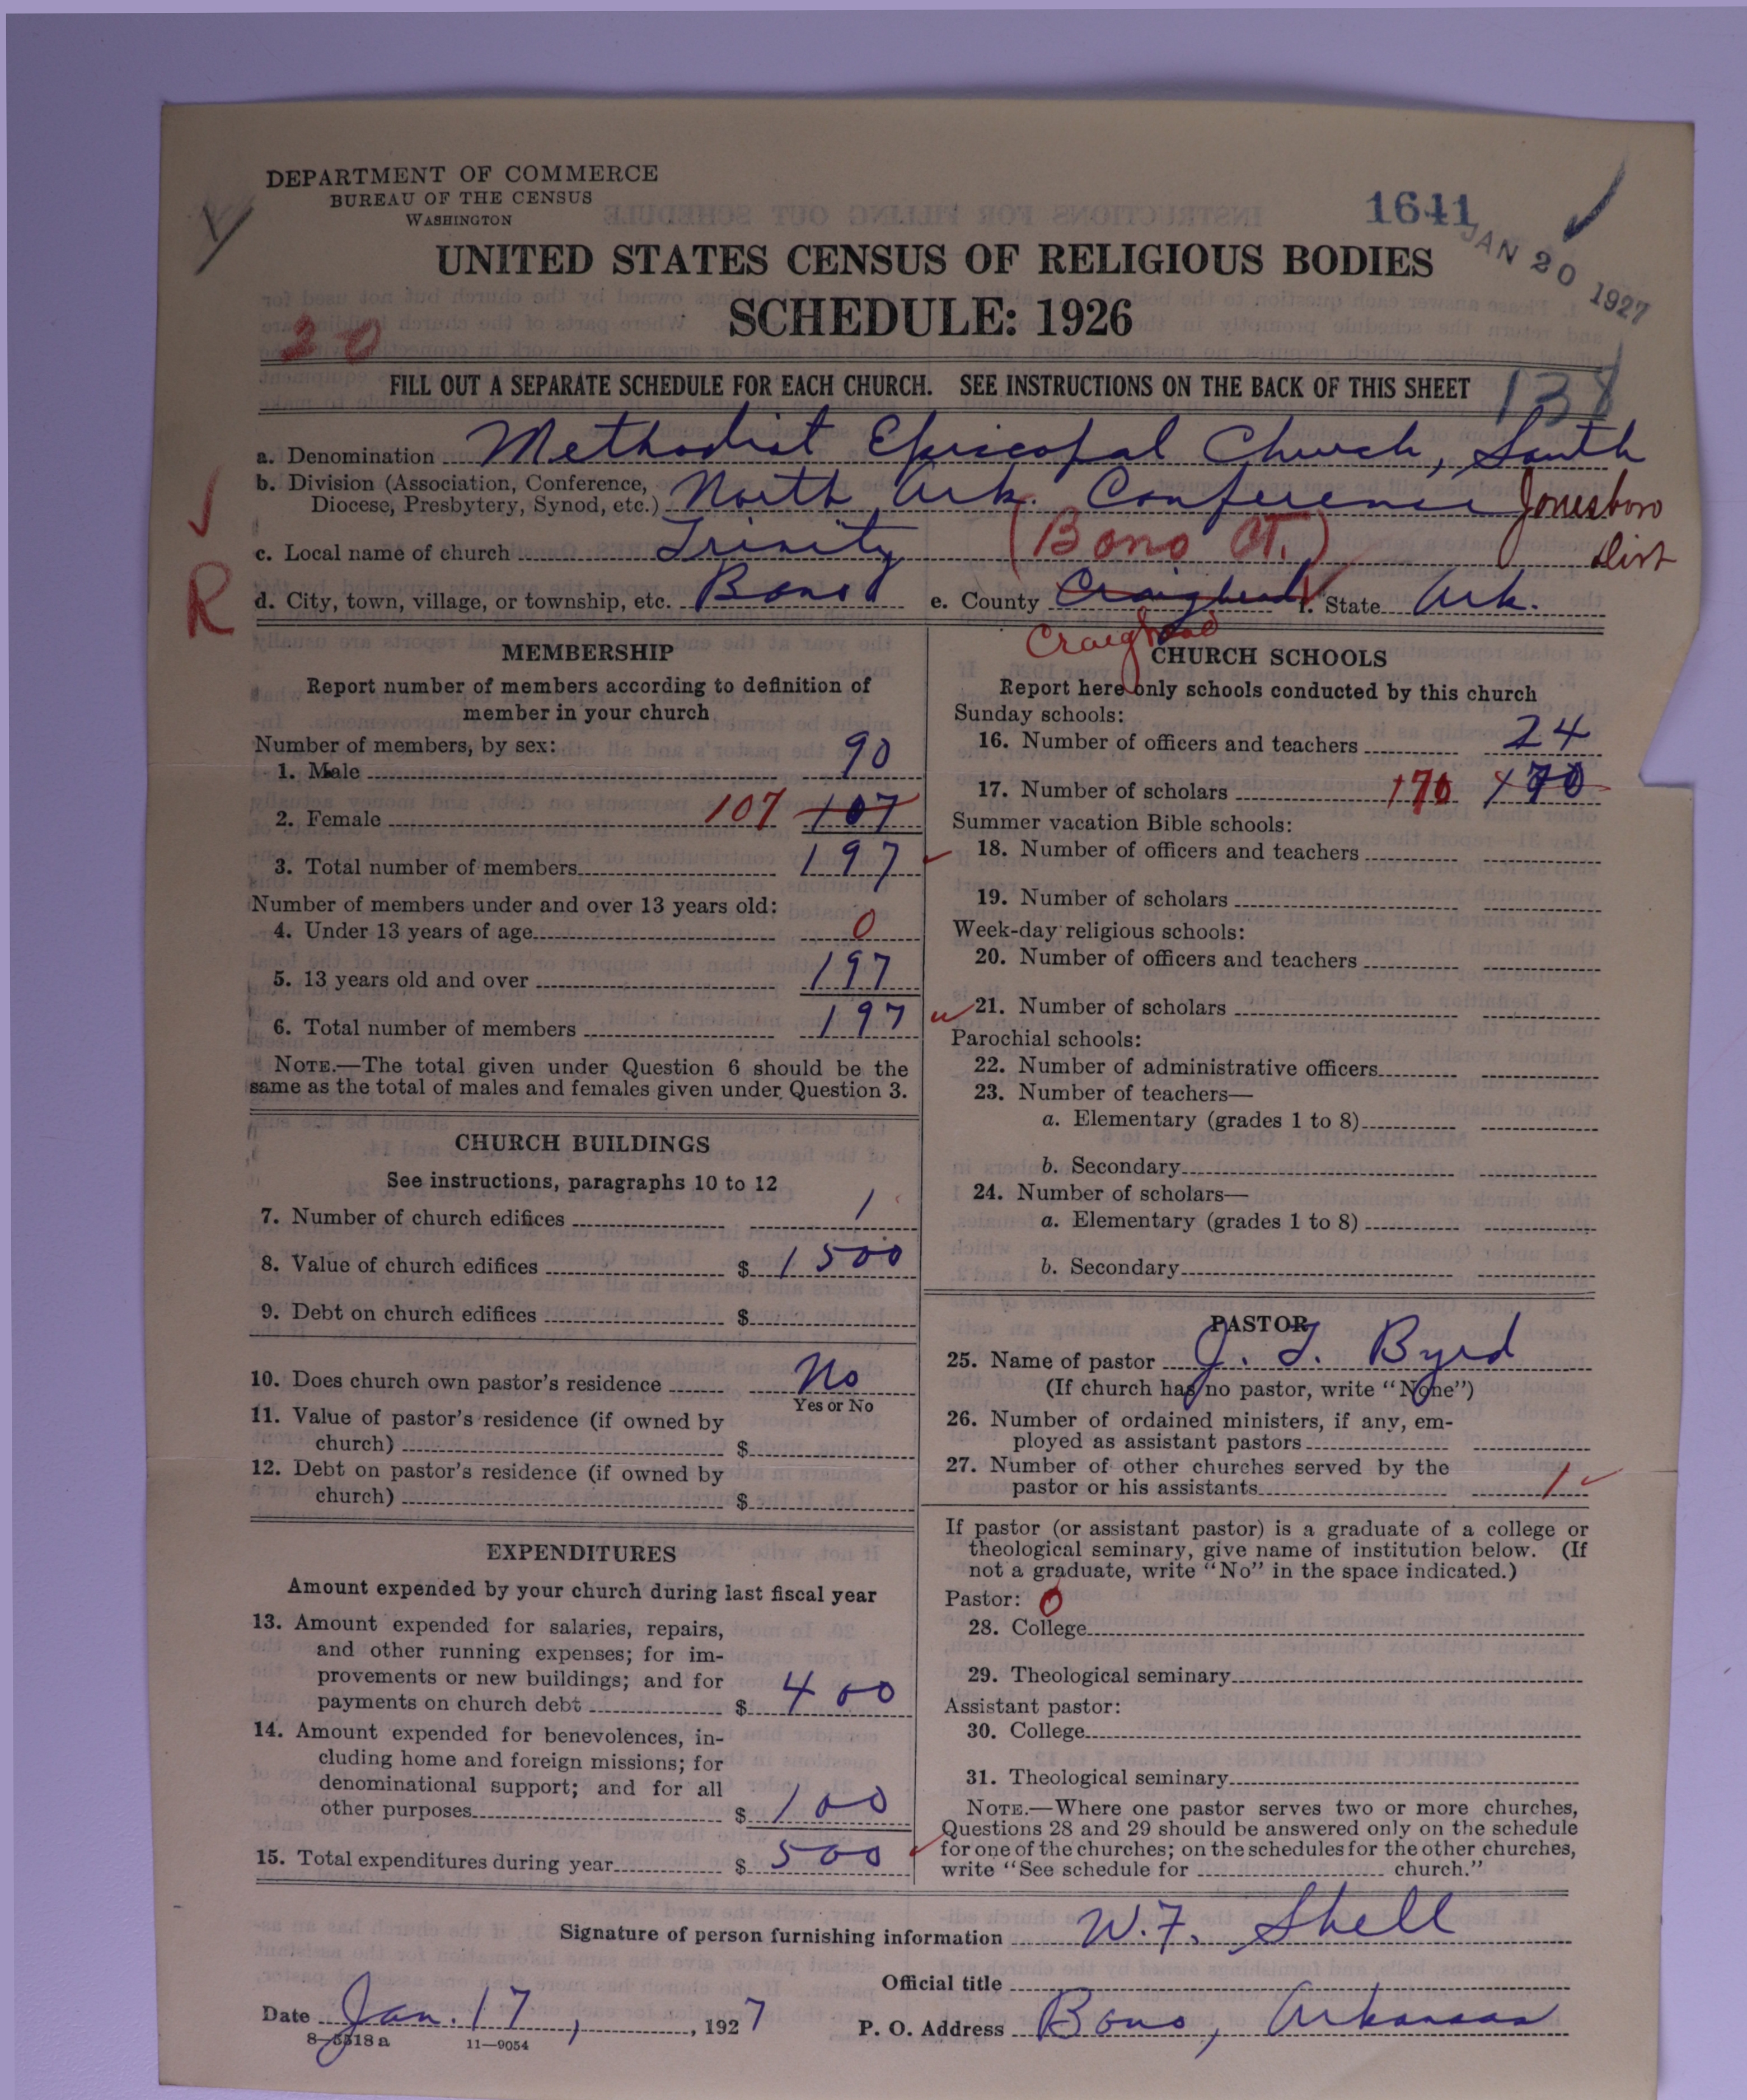 DEPARTMENT OF COMMERCE
BUREAU OF THE CENSUS
WASHINGTON
1641
JAN 20 1927
UNITED STATES CENSUS OF RELIGIOUS BODIES
SCHEDULE: 1926
20
FILL OUT A SEPARATE SCHEDULE FOR EACH CHURCH. SEE INSTRUCTIONS ON THE BACK OF THIS SHEET
138
a. Denomination Methodist Episcopal Church, South
b. Division (Association, Conference,
Diocese, Presbytery, Synod, etc.) North Ark. Conference Jonesboro
Dist
c. Local name of church Trinity (Bono Ct.)
R
d. City, town, village, or township, etc. Bono e. County Craighead f. State Ark.
Craighead
MEMBERSHIP
Report number of members according to definition of
member in your church
Number of members, by sex:
1. Male 90
2. Female 107 107
3. Total number of members 197
Number of members under and over 13 years old:
4. Under 13 years of age 0
5. 13 years old and over 197
6. Total number of members 197
NOTE.—The total given under Question 6 should be the
same as the total of males and females given under Question 3.
CHURCH BUILDINGS
See instructions, paragraphs 10 to 12
7. Number of church edifices 1
8. Value of church edifices $ 1500
9. Debt on church edifices $
10. Does church own pastor's residence No
Yes or No
11. Value of pastor's residence (if owned by
church) $
12. Debt on pastor's residence (if owned by
church) $
EXPENDITURES
Amount expended by your church during last fiscal year
13. Amount expended for salaries, repairs,
and other running expenses; for im-
provements or new buildings; and for
payments on church debt $ 400
14. Amount expended for benevolences, in-
cluding home and foreign missions; for
denominational support; and for all
other purposes $ 100
15. Total expenditures during year $ 500
CHURCH SCHOOLS
Report here only schools conducted by this church
Sunday schools:
16. Number of officers and teachers 24
17. Number of scholars 170 170
Summer vacation Bible schools:
18. Number of officers and teachers
19. Number of scholars
Week-day religious schools:
20. Number of officers and teachers
21. Number of scholars
Parochial schools:
22. Number of administrative officers
23. Number of teachers—
a. Elementary (grades 1 to 8)
b. Secondary
24. Number of scholars—
a. Elementary (grades 1 to 8)
b. Secondary
PASTOR
25. Name of pastor J. T. Byrd
(If church has no pastor, write "None")
26. Number of ordained ministers, if any, em-
ployed as assistant pastors
27. Number of other churches served by the
pastor or his assistants 1
If pastor (or assistant pastor) is a graduate of a college or
theological seminary, give name of institution below. (If
not a graduate, write "No" in the space indicated.)
Pastor: 0
28. College
29. Theological seminary
Assistant pastor:
30. College
31. Theological seminary
NOTE.—Where one pastor serves two or more churches,
Questions 28 and 29 should be answered only on the schedule
for one of the churches; on the schedules for the other churches,
write "See schedule for church."
Signature of person furnishing information W. F. Shell
Official title
Date Jan. 17, 1927
P. O. Address Bono, Arkansas
8—5518a 11—9054